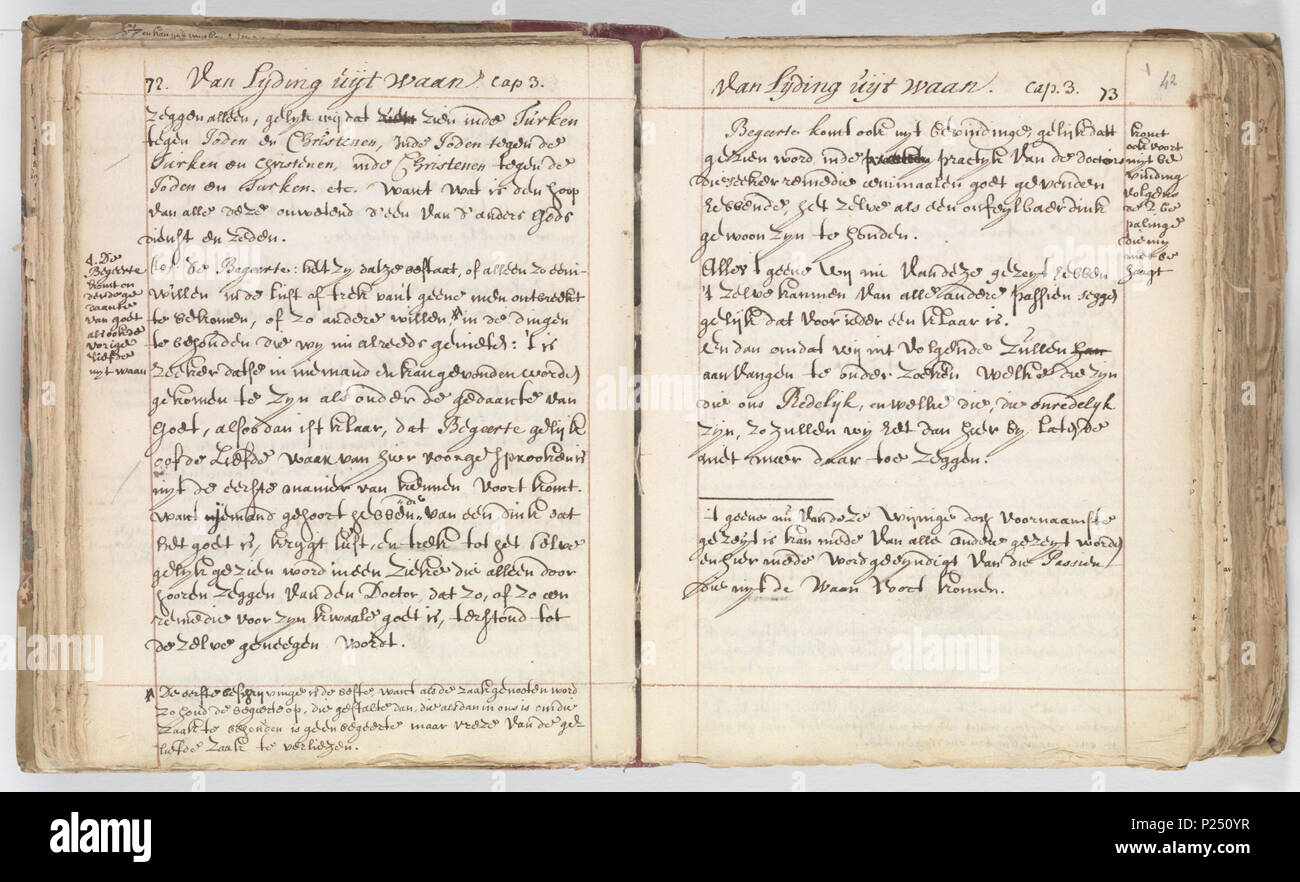 72. Van Lyding uijt waan. Cap 3.
zeggen alleen, gelyk wij dat zien inde Turken
tegen Joden en Christenen, inde Joden tegen de
Turken en Christenen, inde Christenen tegen de
Joden en Turken. etc. Want wat is den hoop
van alle deze onwetend d'een van d'anders Gods
dienst en zeden.
4. De
Begeerte
komt on
der de ge
daante
van goet
als ook de
vorige
liefde
uyt waan
De Begeerte: het zy datze bestaat, of alleen zo eenige
willen in de lust of trek van't geene men ontbreekt
te bekomen, of zo andere willen, A in de dingen
te behouden die wy nu alreeds genieten: 't is
zeeker datse in niemand en kan gevonden worden
gekomen te zyn als onder de gedaante van
Goet, alsoo dan ist klaar, dat Begeerte gelijk
ook de Liefde waar van hier voor gesprooken is
uyt de eerste manier van kennen voort komt.
want iemand gehoort hebbende van een dink dat
het goet is, krygt lust, en trek tot het selve
gelyk gezien word in een zieke die alleen door
hooren zeggen van den Doctor, dat zo, of zo een
remedie voor zyn kwaale goet is, terstond tot
de zelve geneegen wordt.
A De eerste beschryvinge is de beste, want als de zaak genooten word
zo houd de begeerte op, die gestalte dan, die als dan in ons is om die
zaak te behouden is geen begeerte maar vreze van de ge-
liefde zaak te verliezen.
Van Lyding uijt waan. Cap. 3. 73
42
Begeerte komt ook uyt bevindinge, gelijk dat
gezien word inde practyk van de doctors
die seeker remedie eenimaalen goet gevonden
hebbende, het zelve als een onfeylbaer dink
gewoon zyn te houden.
komt
ook voort
uyt be
vinding
volgens
de be
palinge
die my
niet be
haagt
Alles 't geene wy nu van deze gezeyt hebben
't zelve kan men van alle andere passien seggen
gelijk dat voor ieder een klaar is.
En dan omdat wij int volgende zullen
aanvangen te onder zoeken welke die zyn
die ons Redelyk, en welke die, die onredelyk
zyn, zo zullen wij het dan hier by laten
niet meer daar toe zeggen.
't geene nu van deze wijnige doch voornaamste
gezeyt is kan mede van alle andere gezeyt worden
en hier mede word geeyndigt van die Passien
die uyt de Waan voort komen.
alamy
Image ID: P250YR
www.alamy.com